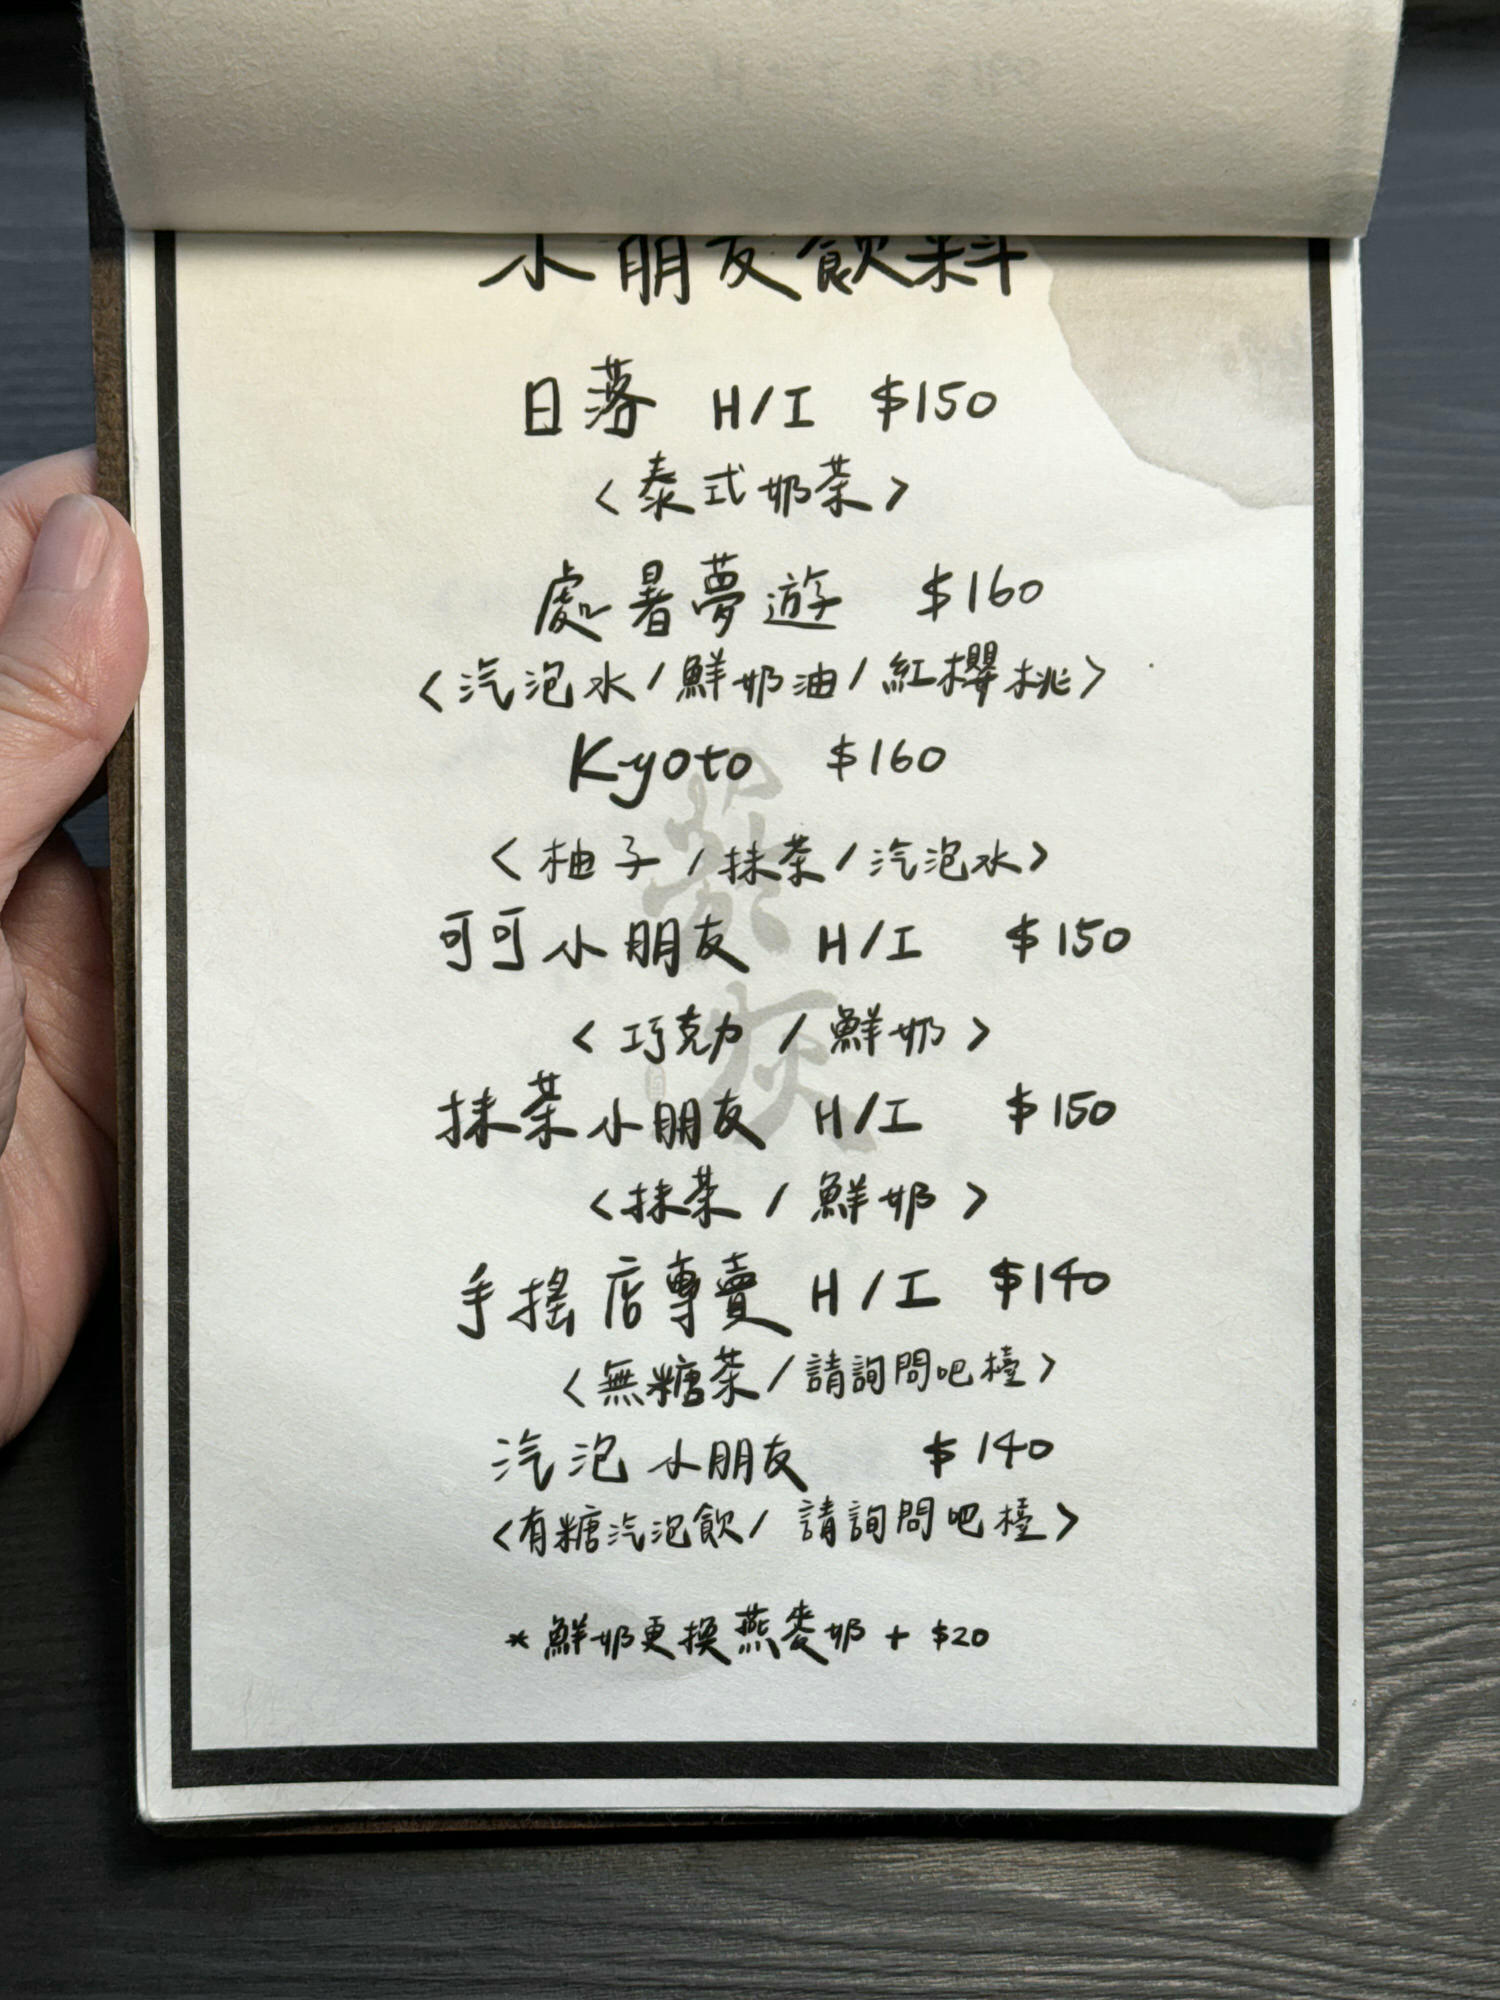 小朋友飲料
日落 H/I $150
<泰式奶茶>
處暑夢遊 $160
<汽泡水/鮮奶油/紅櫻桃>
Kyoto $160
<柚子/抹茶/汽泡水>
可可小朋友 H/I $150
<巧克力/鮮奶>
抹茶小朋友 H/I $150
<抹茶/鮮奶>
手搖店專賣 H/I $140
<無糖茶/請詢問吧檯>
汽泡小朋友 $140
<有糖汽泡飲/請詢問吧檯>
*鮮奶更換燕麥奶 + $20